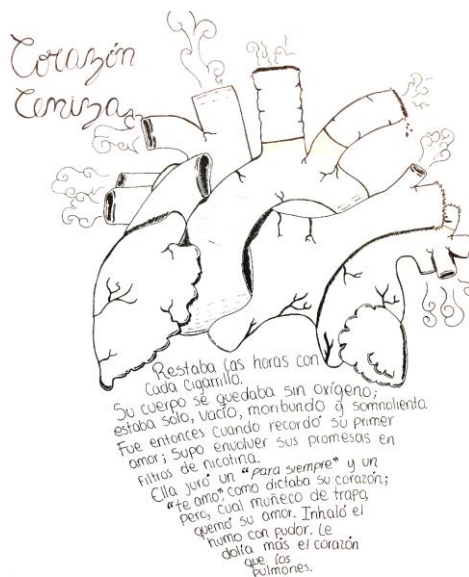 Corazón
Ceniza
Restaba las horas con
cada cigarrillo.
Su cuerpo se quedaba sin oxígeno;
estaba solo, vacío, moribundo y somnoliento.
Fue entonces cuando recordó su primer
amor; supo envolver sus promesas en
filtros de nicotina.
Ella juró un "para siempre" y un
"te amo", como dictaba su corazón;
pero, cual muñeco de trapo,
quemó su amor. Inhaló el
humo con pudor. Le
dolía más el corazón
que los
pulmones.